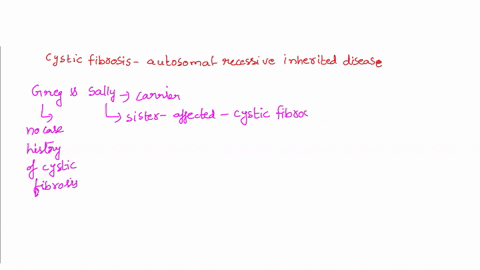 Cystic fibrosis - autosomal recessive inherited disease
Greg & Sally → carrier
↳ sister - affected - cystic fibro
no case
histry
of cystic
fibrosis